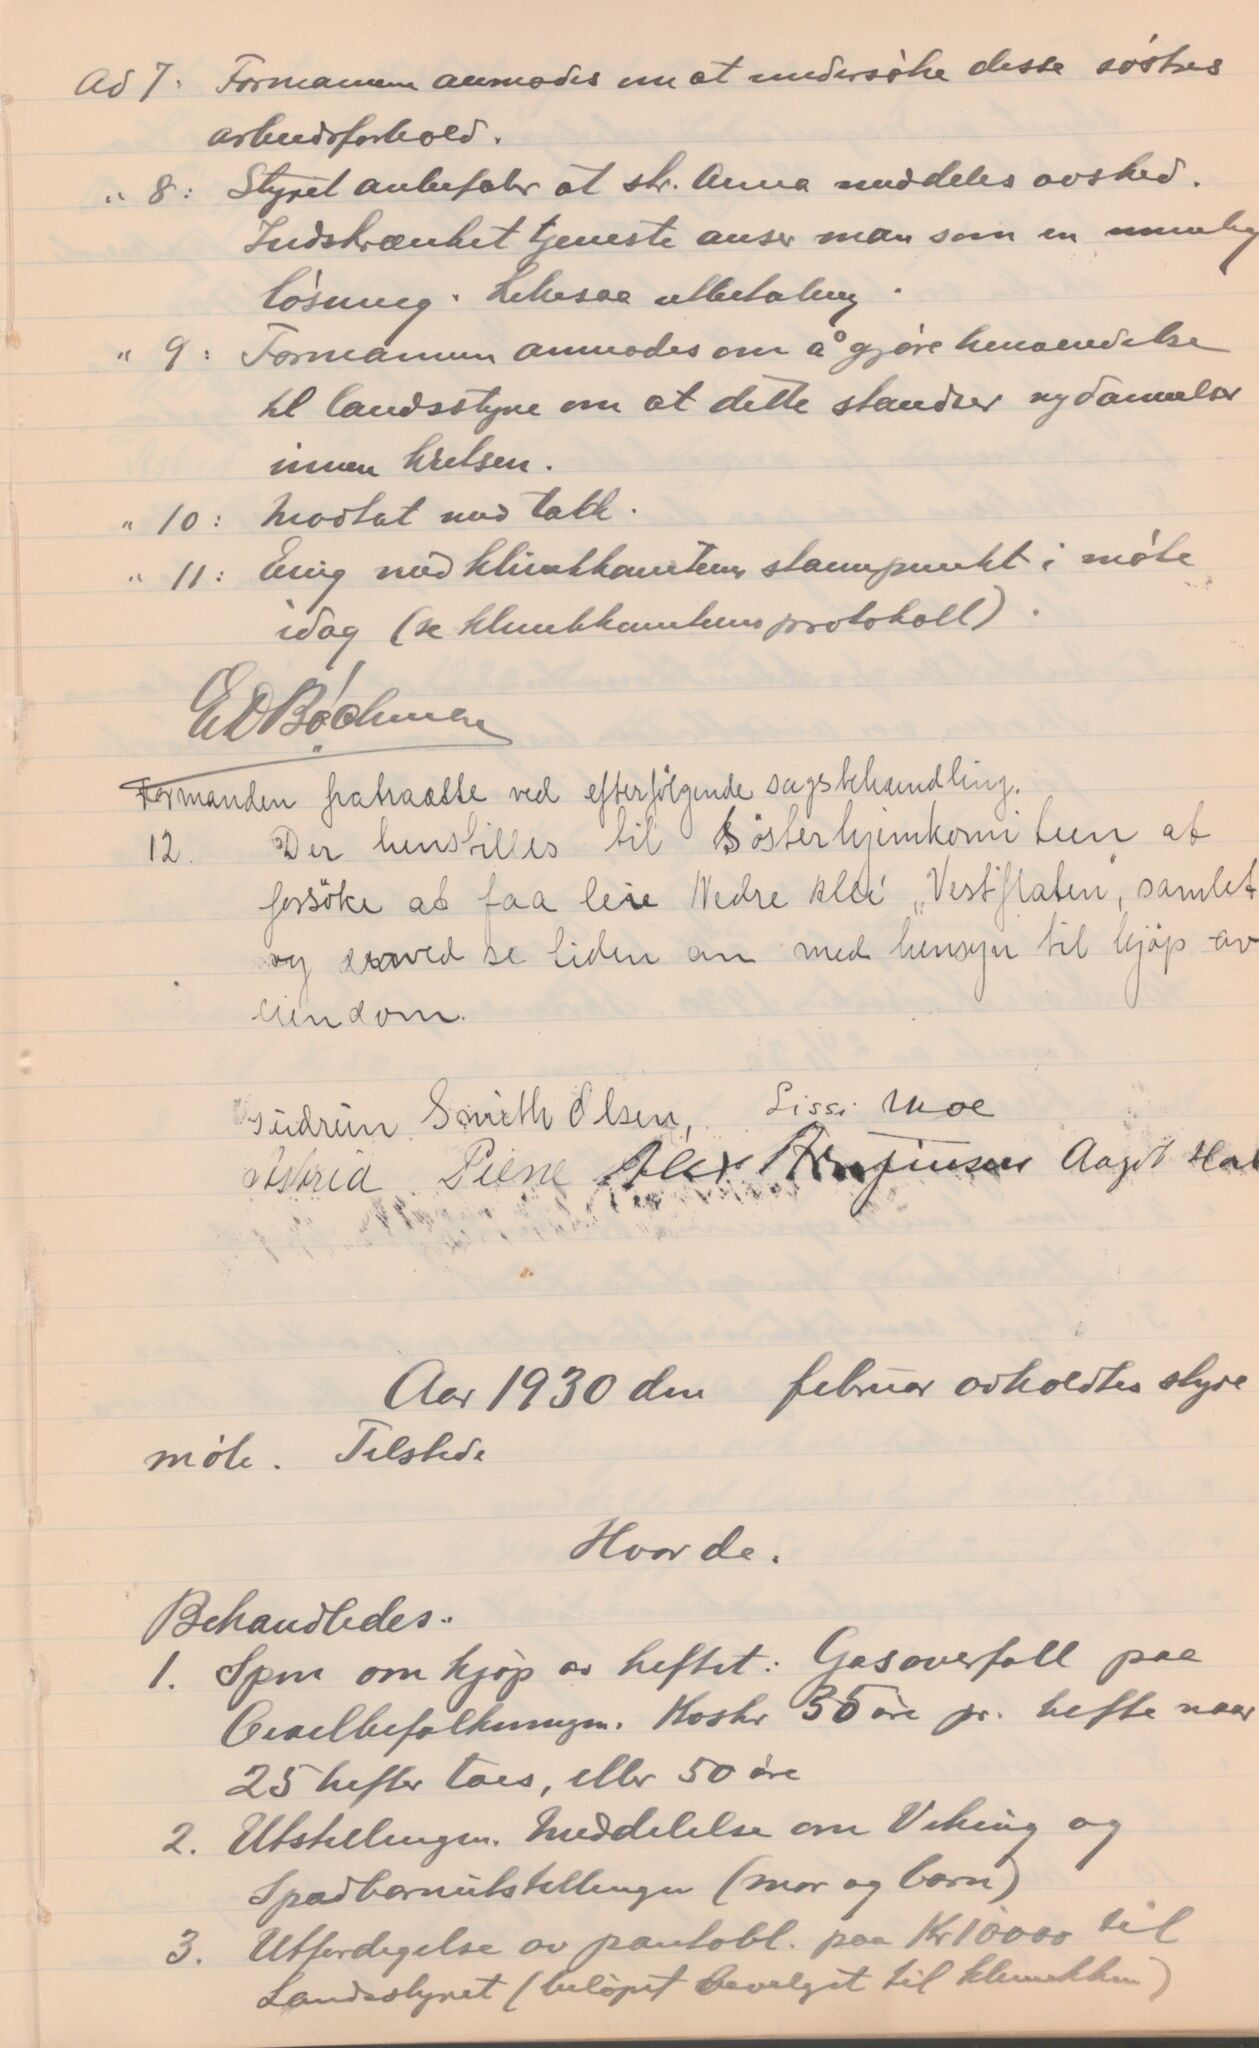 Ad 7: Formannen anmodes om at undersøke desse søstres
arbeidsforhold.
" 8: Styret anbefaler at str. Anna meddeles avsked.
Indskrænket tjeneste anser man som en umulig
løsning. Likesaa utbetaling.
" 9: Formannen anmodes om å gjøre henvendelse
til landsstyre om at dette standser nydannelser
innen kretsen.
" 10: Modtat med takk.
" 11: Enig med klinikkomiteens standpunkt i møte
idag (se klinikkomiteens protokoll).
Formanden fratraadte ved efterfølgende sagsbehandling.
12. Der henstilles til Søsterhjemkomiteen at
forsöke at faa leie Nedre Allé „Vestflaten", samlet
og derved se tiden an med hensyn til kjøp av
eiendom.
Gudrun Smith Olsen, Lissi Moe
Astrid Piene Alex Aagot
Aar 1930 den februar avholdtes styre
møte. Tilstede
Hvor de.
Behandledes:
1. Spm om kjøp av heftet: Gasoverfall paa
Civilbefolkningen. Koster 35 øre pr. hefte naar
25 hefter taes, eller 50 øre
2. Utstillingen. Meddelelse om Viking og
Spædbarnutstillingen (mor og barn)
3. Utferdigelse av pantobl. paa Kr 10000 til
Landsstyret (beløpet bevilget til klinikken)